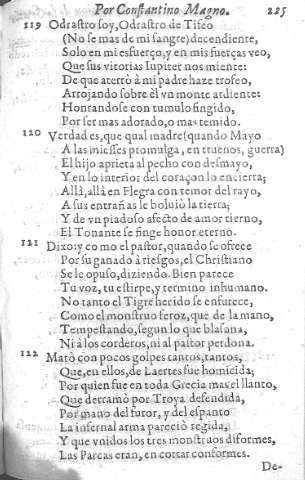 Por Constantino Magno. 225
119 Odrastro soy, Odrastro de Tifeo
(No se mas de mi sangre) decendiente,
Solo en mi esfuerço, y en mis fuerças veo,
Que sus vitorias Iupiter nos miente:
De que aterrò à mi padre haze trofeo,
Arrojando sobre èl vn monte ardiente:
Honrandose con tumulo fingido,
Por ser mas adorado, o mas temido.
120 Verdad es, que qual madre (quando Mayo
A las miesses promulga, en truenos, guerra)
El hijo aprieta al pecho con desmayo,
Y en lo interior del coraçon lo encierra;
Allà, allà en Flegra con temor del rayo,
A sus entrañas le boluiò la tierra;
Y de vn piadoso afecto de amor tierno,
El Tonante se finge honor eterno.
121 Dixo: y como el pastor, quando se ofrece
Por su ganado à riesgos, el Christiano
Se le opuso, diziendo. Bien parece
Tu voz, tu estirpe, y termino inhumano.
No tanto el Tigre herido se enfurece,
Como el monstruo feroz, que de la mano,
Tempestando, segun lo que blasona,
Ni à los corderos, ni al pastor perdona.
122 Matò con pocos golpes tantos, tantos,
Que, en ellos, de Laertes fue homicida;
Por quien fue en toda Grecia mas el llanto,
Que derramò por Troya defendida,
Por mano del furor, y del espanto
La infernal arma pareciò regida,
Y que vnidos los tres monstruos diformes,
Las Parcas eran, en cortar conformes.
De-